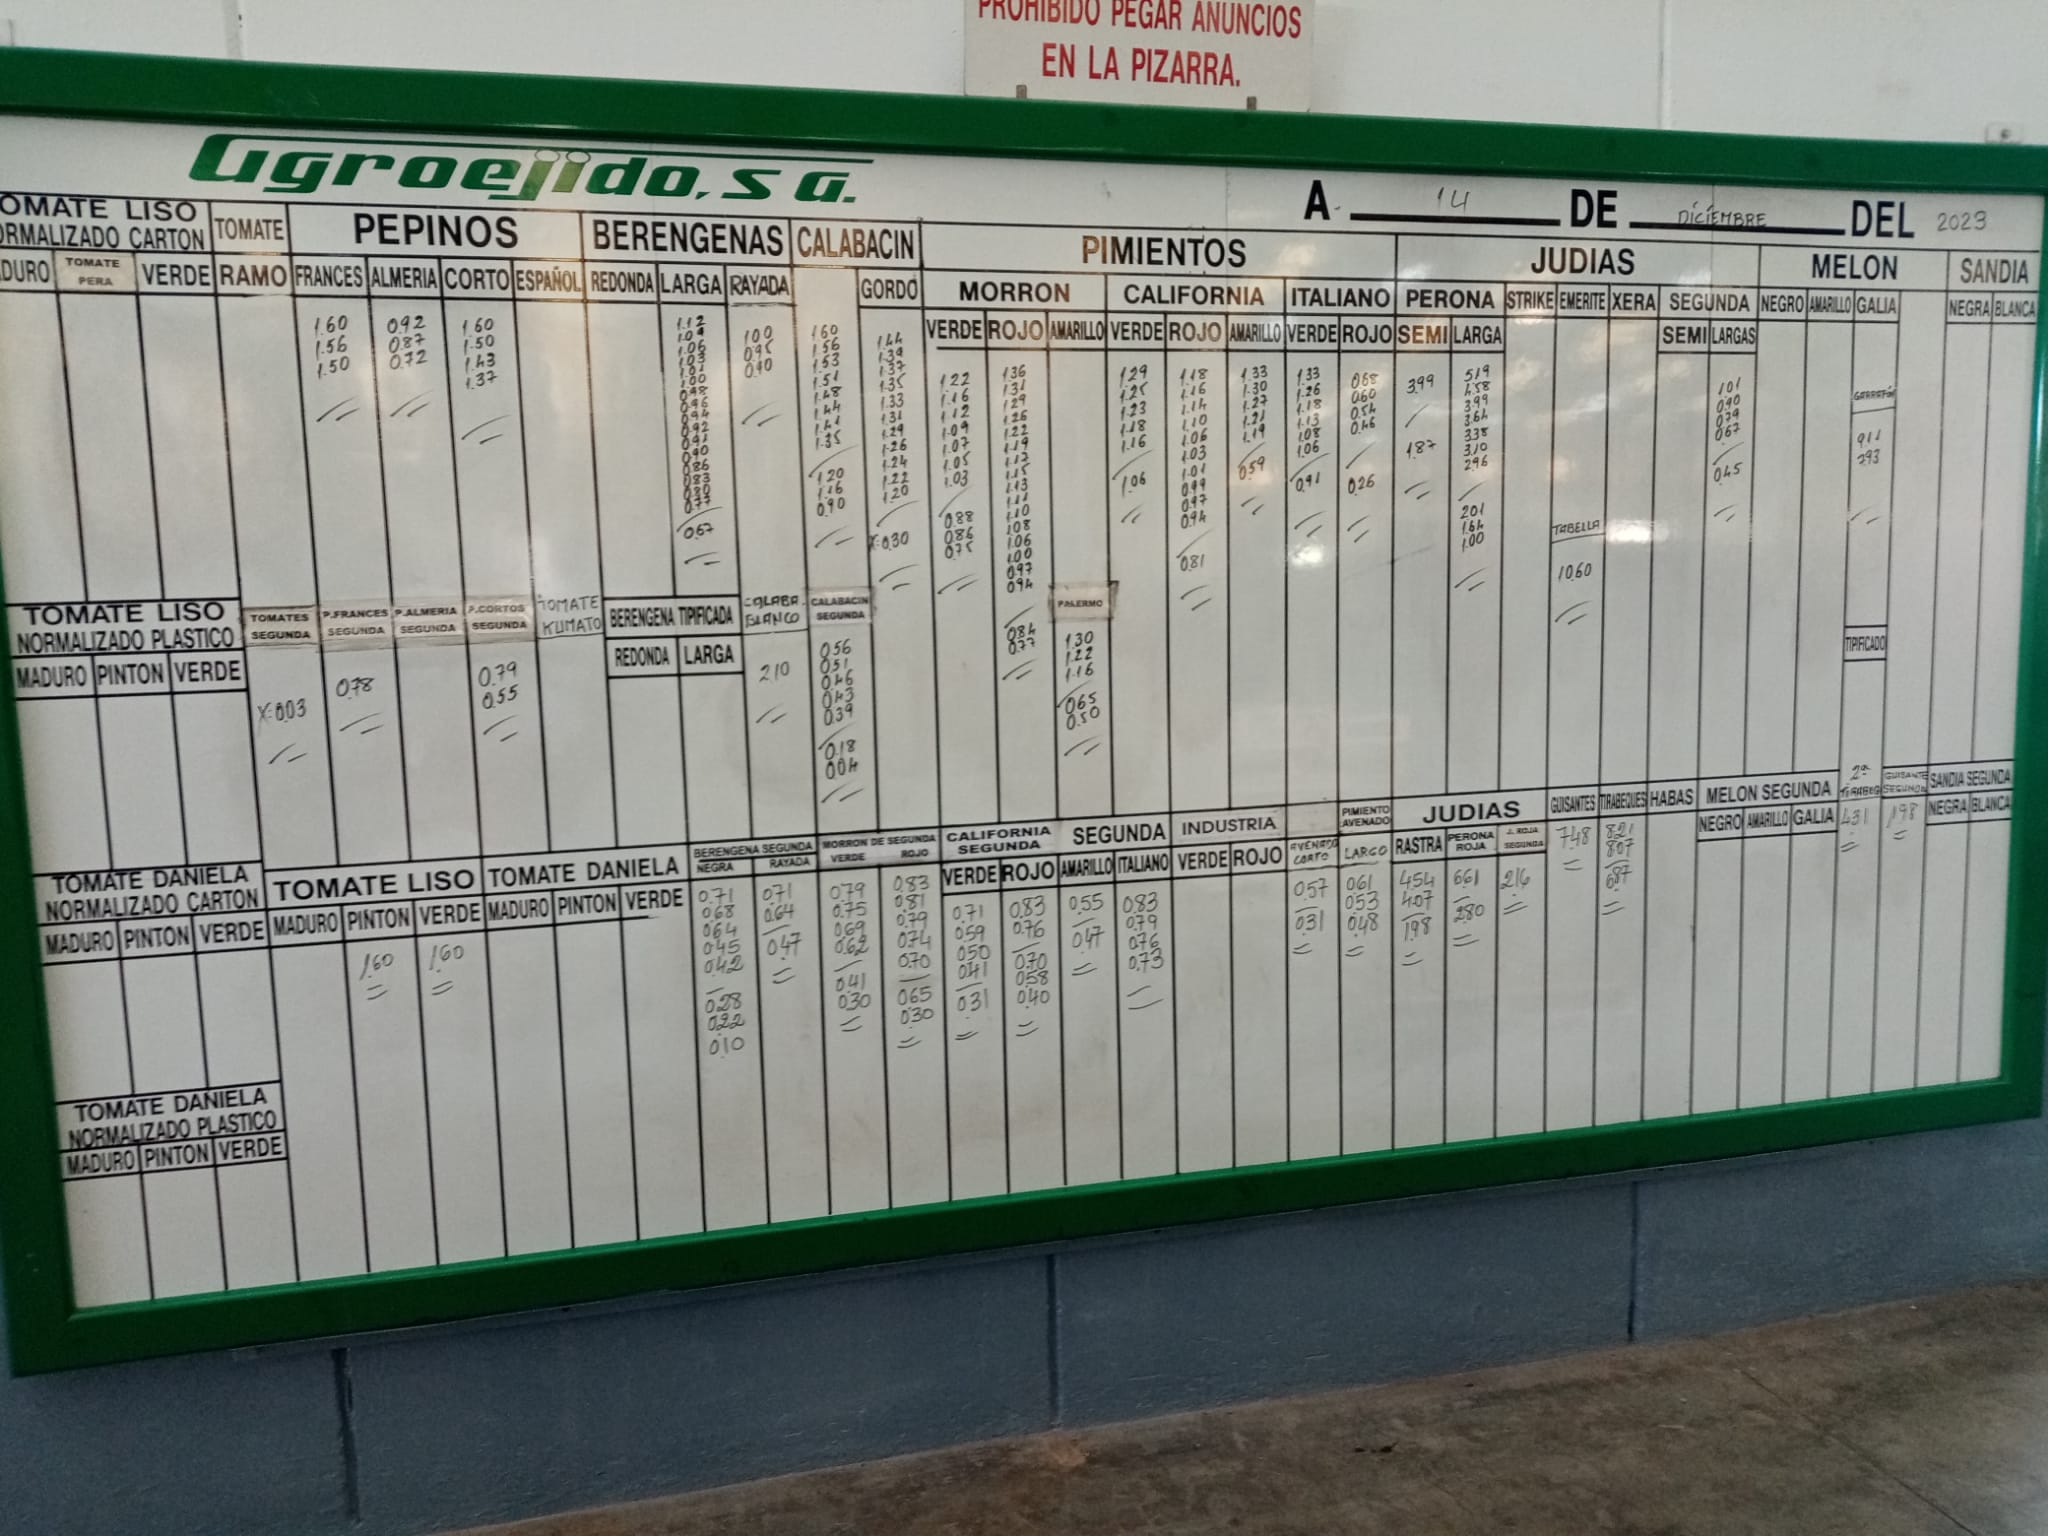 PROHIBIDO PEGAR ANUNCIOS
EN LA PIZARRA.
Agroejido, s a.
A 14 DE DICIEMBRE DEL 2023
OMATE LISO
ORMALIZADO CARTON
DURO
TOMATE
PERA
VERDE
TOMATE
RAMO
PEPINOS
FRANCES ALMERIA CORTO ESPAÑOL
1.60 0.92 1.60
1.56 0.87 1.50
1.50 0.72 1.43
1.37
BERENGENAS
REDONDA LARGA RAYADA
1.12
1.09
1.06
1.03
1.01
1.00
0.98
0.96
0.94
0.92
0.91
0.90
0.86
0.83
0.80
0.77
0.67
1.00
0.95
0.90
CALABACIN
GORDO
1.60
1.56
1.53
1.51
1.48
1.44
1.41
1.35
1.20
1.16
0.90
1.44
1.39
1.37
1.35
1.33
1.31
1.29
1.26
1.24
1.22
1.20
X:0.30
PIMIENTOS
MORRON
VERDE ROJO AMARILLO
1.22
1.16
1.12
1.09
1.07
1.05
1.03
0.88
0.86
0.75
1.36
1.31
1.29
1.26
1.22
1.19
1.17
1.13
1.11
1.10
1.08
1.06
1.00
0.97
0.94
0.84
0.77
PALERMO
1.30
1.22
1.16
0.65
0.50
CALIFORNIA
VERDE ROJO AMARILLO
1.29
1.25
1.23
1.18
1.16
1.06
1.18
1.16
1.14
1.10
1.06
1.03
1.01
0.99
0.97
0.94
0.81
1.33
1.30
1.27
1.21
1.19
0.59
ITALIANO
VERDE ROJO
1.33
1.26
1.18
1.13
1.08
1.06
0.91
0.68
0.60
0.54
0.46
0.26
JUDIAS
PERONA STRIKE EMERITE XERA SEGUNDA
SEMI LARGA
3.99
1.87
5.19
4.58
3.99
3.64
3.38
3.10
2.96
2.01
1.64
1.00
TABELLA
10.60
SEMI LARGAS
1.01
0.90
0.79
0.67
0.45
MELON
NEGRO AMARILLO GALIA
GARRAFON
0.11
2.93
TIPIFICADO
SANDIA
NEGRA BLANCA
TOMATE LISO
NORMALIZADO PLASTICO
MADURO PINTON VERDE
TOMATES
SEGUNDA
X:0.03
P.FRANCES
SEGUNDA
0.78
P.ALMERIA
SEGUNDA
P.CORTOS
SEGUNDA
0.79
0.55
TOMATE
KUMATO
BERENGENA TIPIFICADA
REDONDA LARGA
CALABA.
BLANCO
2.10
CALABACIN
SEGUNDA
0.56
0.51
0.46
0.43
0.39
0.18
0.04
TOMATE DANIELA
NORMALIZADO CARTON
MADURO PINTON VERDE
TOMATE LISO
MADURO PINTON VERDE
1.60 1.60
TOMATE DANIELA
MADURO PINTON VERDE
BERENGENA SEGUNDA
NEGRA RAYADA
0.71
0.68
0.64
0.45
0.42
0.28
0.22
0.10
0.71
0.64
0.47
MORRON DE SEGUNDA
VERDE ROJO
0.79
0.75
0.69
0.62
0.41
0.30
0.83
0.81
0.79
0.74
0.70
0.65
0.30
CALIFORNIA
SEGUNDA
VERDE ROJO
0.71
0.59
0.50
0.41
0.31
0.83
0.76
0.70
0.58
0.40
SEGUNDA
AMARILLO ITALIANO
0.55
0.47
0.83
0.79
0.76
0.73
INDUSTRIA
VERDE ROJO
PIMIENTO
AVENADO
AVENADO
CORTO
LARGO
0.57
0.31
0.61
0.53
0.48
JUDIAS
RASTRA
PERONA
ROJA
J. ROJA
SEGUNDA
4.54
4.07
1.98
6.61
2.80
2.16
GUISANTES TIRABEQUES HABAS
7.48
8.21
8.07
6.87
MELON SEGUNDA
NEGRO AMARILLO GALIA
2ª
TIRABEQ
4.31
GUISANTE
SEGUNDA
1.98
SANDIA SEGUNDA
NEGRA BLANCA
TOMATE DANIELA
NORMALIZADO PLASTICO
MADURO PINTON VERDE